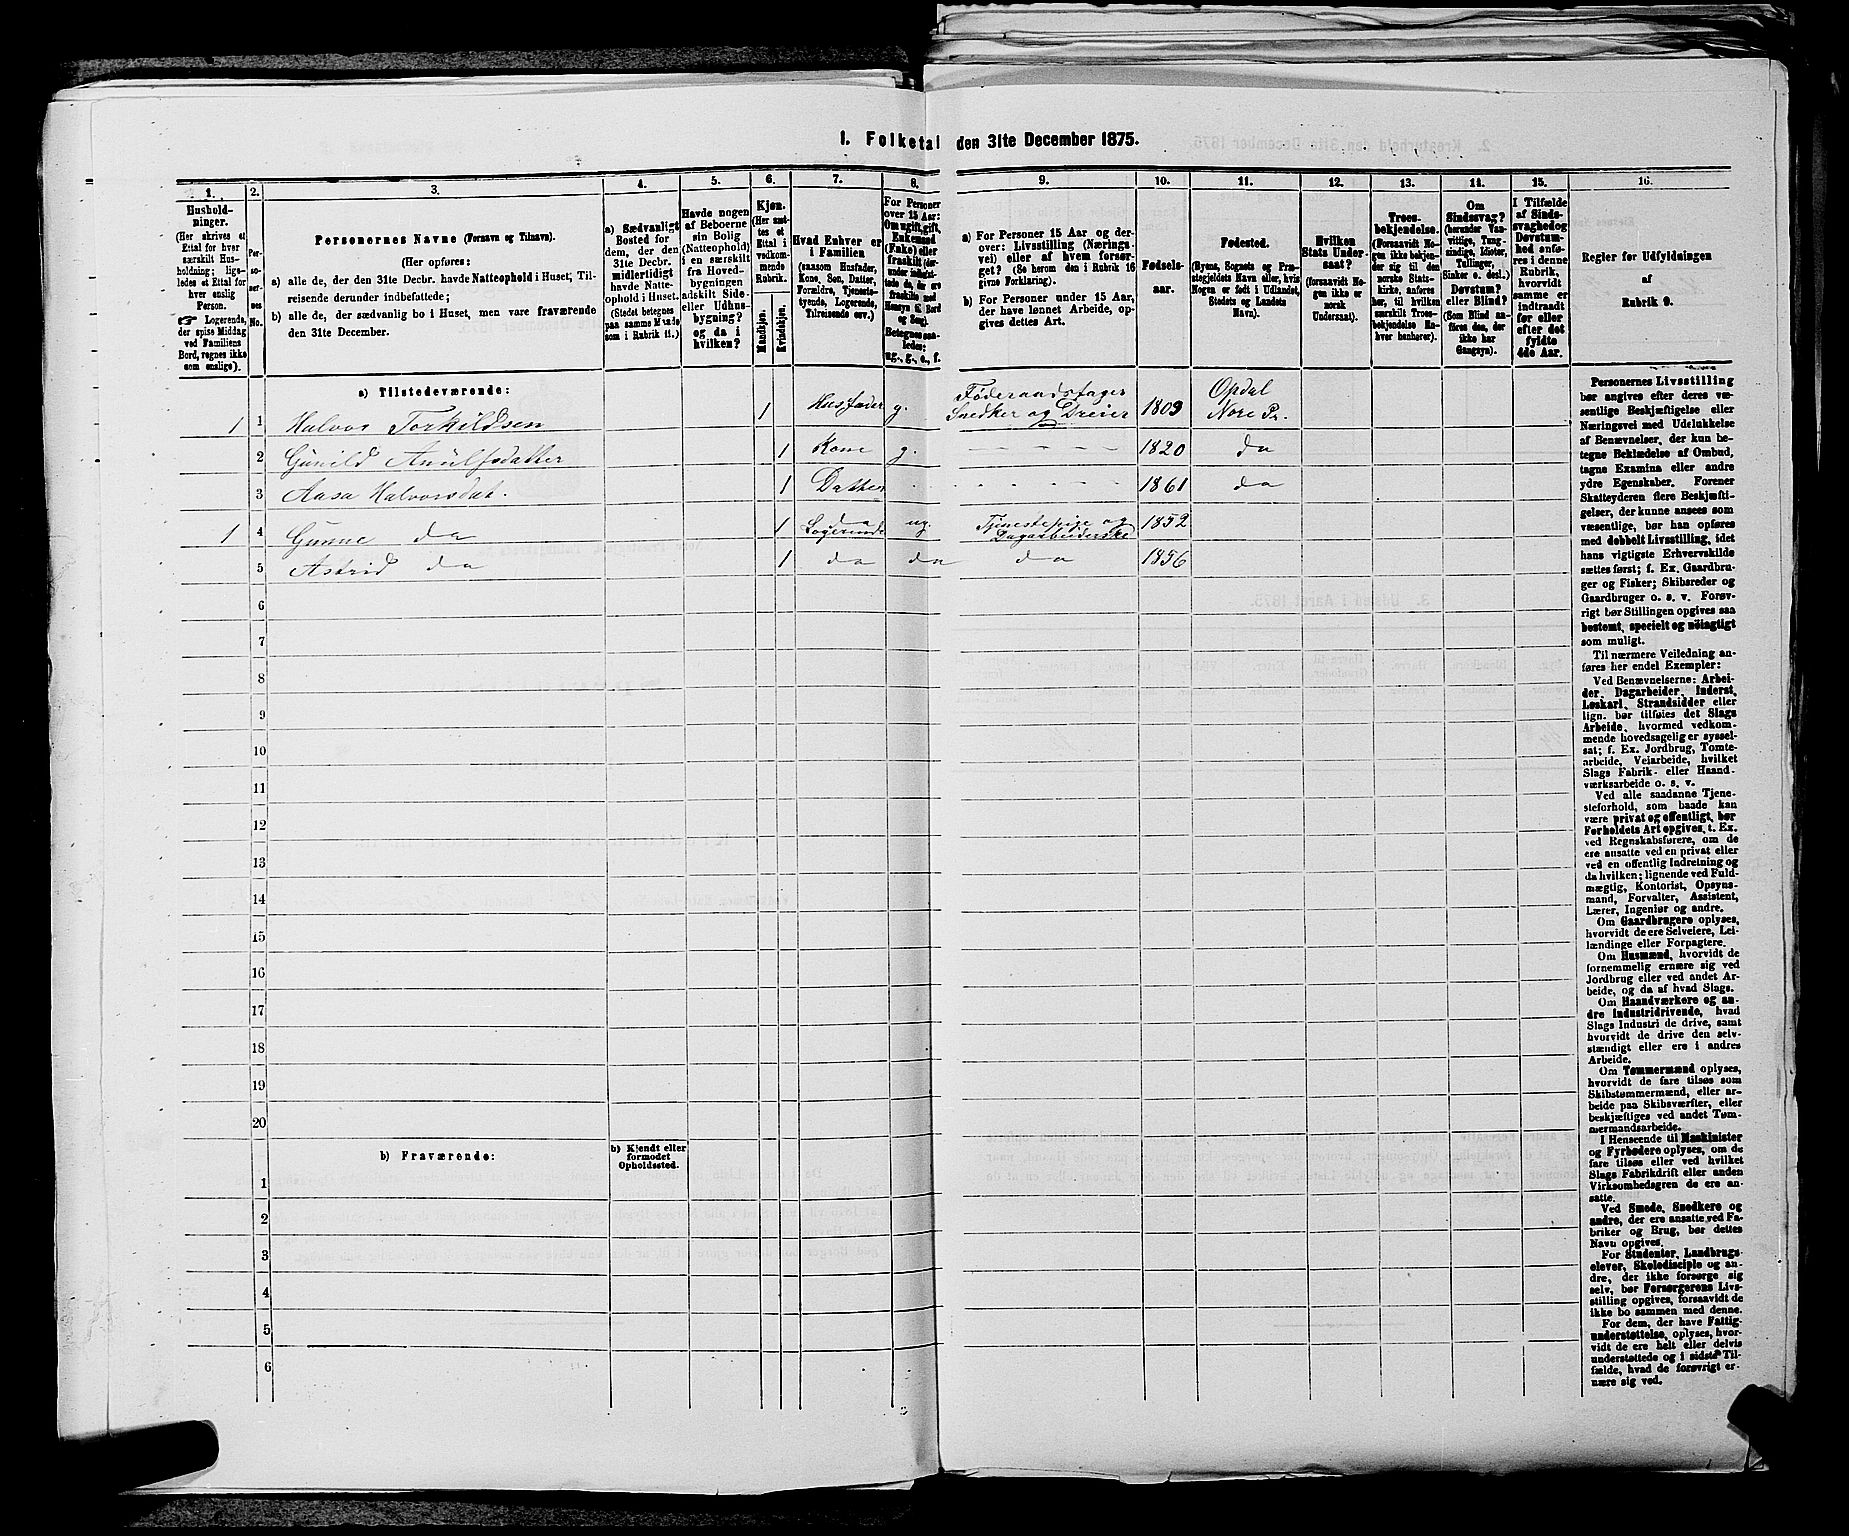 1. Folketal den 31te December 1875.
1.
Hushold-
ninger.
(Her skrives et
Ettal for hver
særskilt Hus-
holdning; lige-
ledes et Ettal for
hver enslig
Person.
Logerende,
der spise Middag
ved Familiens
Bord, regnes ikke
som enslige).
2.
Per-
so-
ner-
nes
No.
3.
Personernes Navne (Fornavn og Tilnavn).
(Her opføres:
a) alle de, der den 31te Decbr. havde Natteophold i Huset, Til-
reisende derunder indbefattede;
b) alle de, der sædvanlig bo i Huset, men vare fraværende
den 31te December.
4.
a) Sædvanligt
Bosted for
dem, der den
31te Decbr.
midlertidigt
havde Natte-
ophold i Huset.
(Stedet betegnes
paa samme Maade
som i Rubrik 11.)
5.
Havde nogen
af Beboerne
sin Bolig
(Natteophold)
i en særskilt
fra Hoved-
bygningen
adskilt Side-
eller Udhus-
bygning?
og da i
hvilken?
6.
Kjøn.
(Her sæt-
tes et
Ettal i
vedkom-
mende
Rubrik.)
Mandkjøn.
Kvindekjøn.
7.
Hvad Enhver er
i Familien
(saasom Husfader,
Kone, Søn, Datter,
Forældre, Tjeneste-
tyende, Logerende,
Tilreisende osv.)
8.
For Personer
over 15 Aar:
Om ugift, gift,
Enkemand
(Enke) eller
fraskilt
Betegnes saa-
ledes:
ug., g., e., f.
9.
a) For Personer 15 Aar og der-
over: Livsstilling (Nærings-
vei) eller af hvem forsør-
get? (Se herom den i Rubrik 16
givne Forklaring).
b) For Personer under 15 Aar,
der have lønnet Arbeide, op-
gives dettes Art.
10.
Fødsels-
aar.
11.
Fødested.
(Byens, Sognets og Præ-
stegjeldets Navn eller, hvis
Nogen er født i Udlandet,
Stedets og Landets
Navn).
12.
Hvilken
Stats Under-
saat?
(forsaavidt No-
gen ikke er
norsk
Undersaat).
13.
Troes-
bekjendelse.
(Forsaavidt No-
gen ikke bekjen-
der sig til den
norske Stats-
kirke, anføres
her, til hvilken
særskilt Troes-
bekjendelse En-
hver henhører).
14.
Om
Sindssvag?
(herunder Van-
vittige, Tung-
sindige, Idioter,
Tullinger,
Sinker o. desl.)
Døvstum?
eller Blind?
(Som Blind an-
føres den, der
ikke har
Gangsyn).
15.
I Tilfælde
af Sinds-
svaghed og
Døvstum-
hed anfø-
res i denne
Rubrik,
hvorvidt
samme er
indtraadt
før eller
efter det
fyldte
4de Aar.
16.
Regler for Udfyldningen
af
Rubrik 9.
a) Tilstedeværende:
1 1 Halvor Torkildsen 1 Husfader g. Føderaadstager Snedker og Dreier 1809 Opdal Nore Pr.
2 Gunild Arnulfsdatter 1 Kone g. 1820 da
3 Aasa Halvorsdat. 1 Datter 1861 da
1 4 Gunne da 1 da Logerende ug. Tjenestepige og Dagarbeiderske 1852
5 Astrid da 1 da da da 1856
6
7
8
9
10
11
12
13
14
15
16
17
18
19
20
b) Fraværende:
b) Kjendt eller
formodet
Opholdssted.
1
2
3
4
5
6
Personernes Livsstilling
bør angives efter deres væ-
sentlige Beskjæftigelse eller
Næringsvei med Udelukkelse
af Benævnelser, der kun be-
tegne Beklædelse af Ombud,
tagne Examina eller andre
ydre Egenskaber. Forener
Skatteyderen flere Beskjæfti-
gelser, der kunne ansees som
væsentlige, bør han opføres
med dobbelt Livsstilling, idet
hans vigtigste Erhvervskilde
sættes først; f. Ex. Gaardbru-
ger og Fisker; Skibsreder og
Gaardbruger o. s. v. Forøv-
rigt bør Stillingen opgives saa
bestemt, specielt og nøiagtigt
som muligt.
Til nærmere Veiledning an-
føres her endel Exempler:
Ved Benævnelserne: Arbei-
der, Dagarbeider, Inderst,
Løskarl, Strandsidder eller
lign. bør tilføies det Slags
Arbeide, hvormed vedkom-
mende hovedsagelig er syssel-
sat; f. Ex. Jordbrug, Tomte-
arbeide, Veiarbeide, hvilket
Slags Fabrik- eller Haand-
værksarbeide o. s. v.
Ved alle saadanne Tjene-
steforhold, som baade kan
være privat og offentligt, bør
Forholdets Art opgives, t. Ex.
ved Regnskabsførere, om de
ere ansatte ved en privat eller
ved en offentlig Indretning og
da hvilken; lignende ved Fuld-
mægtig, Kontorist, Opsyns-
mand, Forvalter, Assistent,
Lærer, Ingeniør og andre.
Om Gaardbrugere oplyses,
hvorvidt de ere Selveiere, Lei-
lændinge eller Forpagtere.
Om Husmænd, hvorvidt de
fornemmelig ernære sig ved
Jordbrug eller ved andet Ar-
beide, og da af hvad Slags.
Om Haandværkere og an-
dre Industridrivende, hvad
Slags Industri de drive, samt
hvorvidt de drive den selv-
stændigt eller ere i andres
Arbeide.
Om Tømmermænd oplyses,
hvorvidt de fare tilsøs som
Skibstømmermænd, eller ar-
beide paa Skibsværfter, eller
beskjæftiges ved andet Tøm-
mermandsarbeide.
I Henseende til Maskinister
og Fyrbødere oplyses, om de
fare tilsøs eller ved hvilket
Slags Fabrikdrift eller anden
Virksomhedsgren de ere an-
satte.
Ved Smede, Snedkere og
andre, der ere ansatte ved Fa-
briker og Brug, bør dettes
Navn opgives.
For Studenter, Landbrugs-
elever, Skoledisciple og an-
dre, der ikke forsørge sig
selv, bør Forsørgerens Livs-
stilling opgives, forsaavidt de
ikke bo sammen med denne.
For dem, der have Fattig-
understøttelse, oplyses, hvor-
vidt de ere helt eller delvis
understøttede og i sidste Til-
fælde, hvad de forøvrigt er-
nære sig ved.